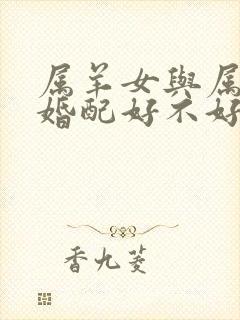 属羊女與属
婚配好不好
香九菱